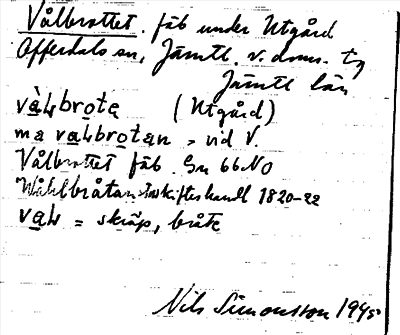 Vålbrottet. fäb under Utgård
Offerdals sn, Jämtl. v. doms. tg
Jämtl län
vàLbrota (Utgård)
ma vaLbrotan, vid V.
Vålbrottet fäb. Gn 66 NO
Wåhlbråtan storskifteshandl 1820-22
vaL = skräp, bråte
Nils Simonsson 1945